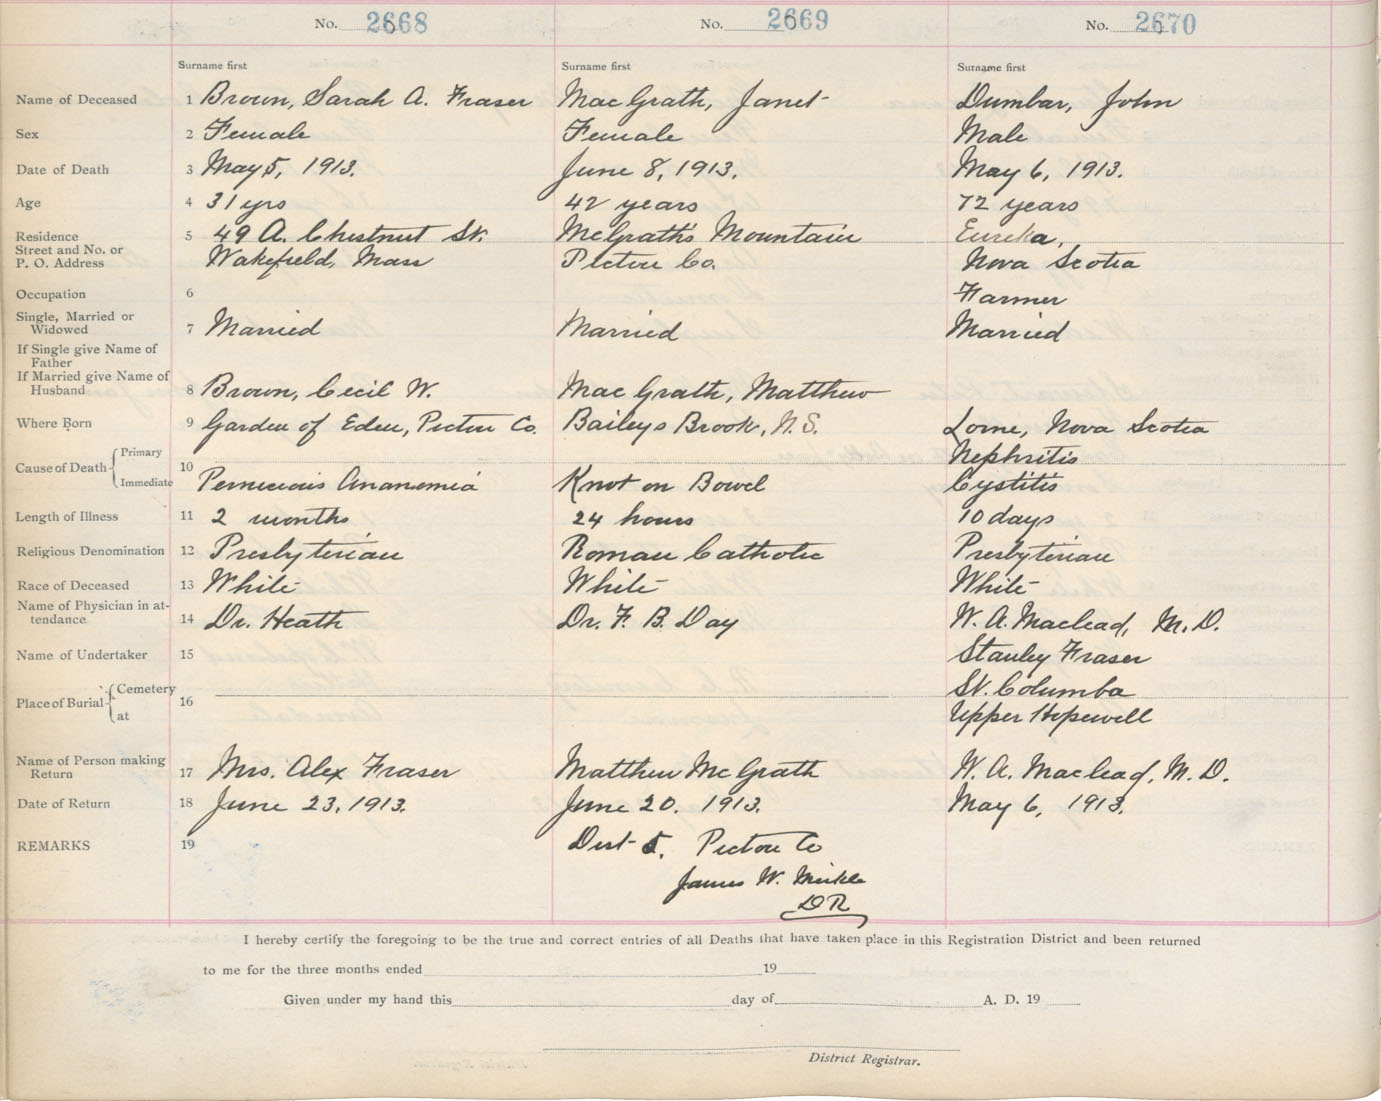 No. 2668 No. 2669 No. 2670
Surname first Surname first Surname first
Name of Deceased 1 Brown, Sarah A. Fraser MacGrath, Janet Dumbar, John
Sex 2 Female Female Male
Date of Death 3 May 5, 1913. June 8, 1913. May 6, 1913.
Age 4 31 yrs 42 years 72 years
Residence 5 49 A. Chestnut St. McGrath's Mountain Eureka,
Street and No. or
P. O. Address Wakefield, Mass Pictou Co. Nova Scotia
Occupation 6 Farmer
Single, Married or
Widowed 7 Married Married Married
If Single give Name of
Father
If Married give Name of
Husband 8 Brown, Cecil W. MacGrath, Matthew
Where Born 9 Garden of Eden, Pictou Co. Baileys Brook, N.S. Lorne, Nova Scotia
Cause of Death Primary 10 Nephritis
Immediate Pernicious Ananemia Knot on Bowel Cystitis
Length of Illness 11 2 months 24 hours 10 days
Religious Denomination 12 Presbyterian Roman Catholic Presbyterian
Race of Deceased 13 White White White
Name of Physician in at-
tendance 14 Dr. Heath Dr. F. B. Day W. A. Maclead, M.D.
Name of Undertaker 15 Stanley Fraser
Place of Burial Cemetery 16 St. Columba
at Upper Hopewell
Name of Person making
Return 17 Mrs. Alex Fraser Matthew McGrath W. A. Maclead, M.D.
Date of Return 18 June 23, 1913. June 20. 1913. May 6, 1913.
REMARKS 19 Dist 5. Pictou Co
James W. Meikle
DR
I hereby certify the foregoing to be the true and correct entries of all Deaths that have taken place in this Registration District and been returned
to me for the three months ended 19
Given under my hand this day of A. D. 19
District Registrar.